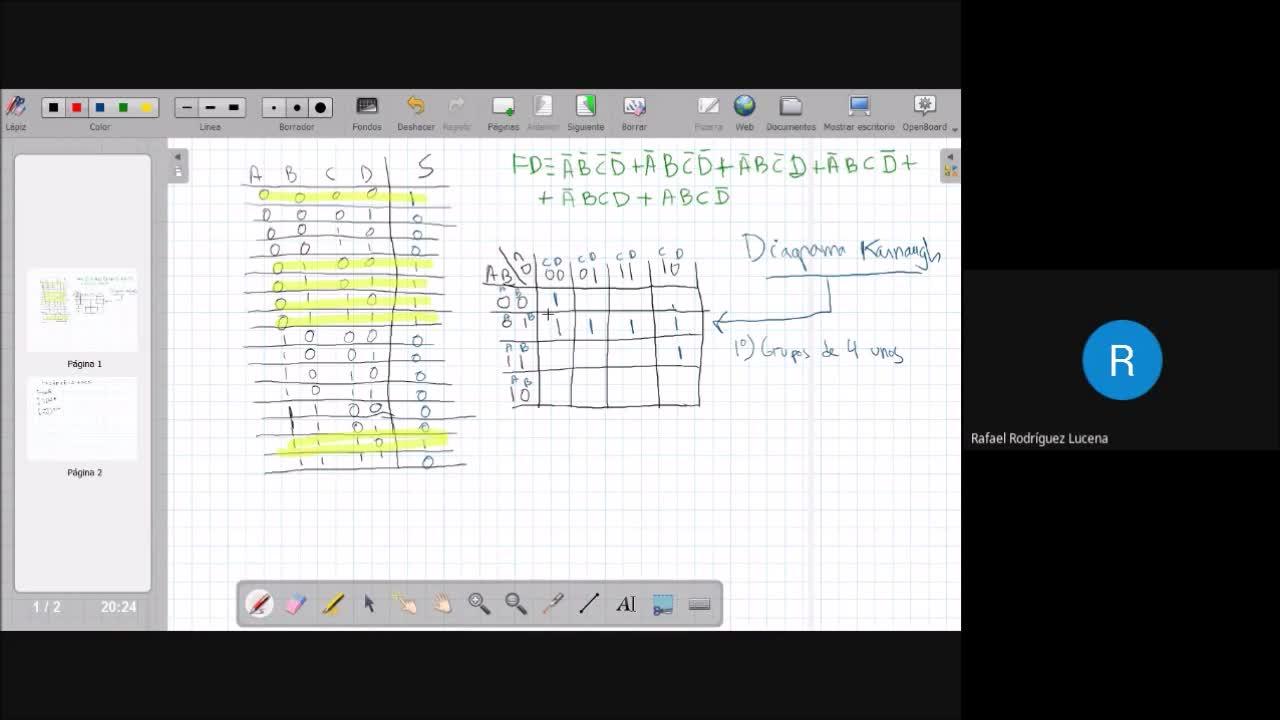 Lápiz Color Línea Borrador Fondos Deshacer Repetir Páginas Anterior Siguiente Borrar Pizarra Web Documentos Mostrar escritorio OpenBoard
A B C D S
0 0 0 0 1
0 0 0 1 0
0 0 1 0 0
0 0 1 1 0
0 1 0 0 1
0 1 0 1 1
0 1 1 0 1
0 1 1 1 1
1 0 0 0 0
1 0 0 1 0
1 0 1 0 0
1 0 1 1 0
1 1 0 0 0
1 1 0 1 0
1 1 1 0 1
1 1 1 1 0
FD=A̅B̅C̅D̅+A̅BC̅D̅+A̅BC̅D+A̅BCD̅+
+A̅BCD+ABCD̅
Diagrama Karnaugh
C̅D̅ C̅D CD CD̅
AB\CD 00 01 11 10
00 1
01 1 1 1 1
11 1
10
1º) Grupos de 4 unos
Página 1
Página 2
1 / 2 20:24
AI
R
Rafael Rodríguez Lucena